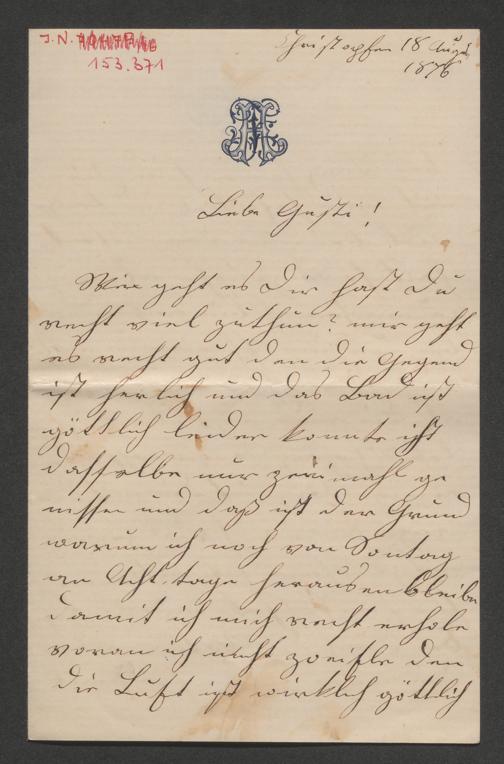 J.N.
153.371
Christopfen 18 Augu
1876
Liebe Gusti!
Wie geht es Dir hast Du
recht viel zuthun? mir geht
es recht gut den die Gegend
ist herlich und das Bad ist
göttlich leider konnte ich
dasselbe nur zweimahl ge
nissen und daß ist der Grund
warum ich noch von Sontag
an Acht tage herausenbleibe
damit ich mich recht erhole
woran ich nicht zweifle den
die Luft ist wirklich göttlich